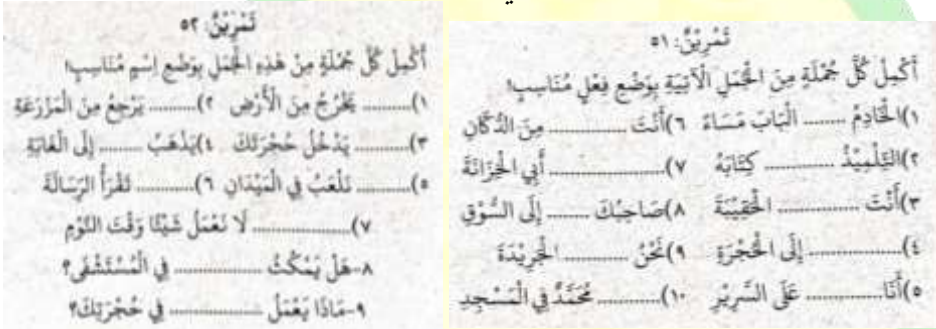 تَمْرِيْنٌ: ٥١
أَكْمِلْ كُلَّ جُمْلَةٍ مِنَ الْجُمَلِ الْآتِيَةِ بِوَضْعِ فِعْلٍ مُنَاسِبٍ!
١)اَلْخَادِمُ ....... الْبَابَ مَسَاءً ٦)أَنْتَ ............. مِنَ الدُّكَّانِ
٢)اَلتِّلْمِيْذُ ............ كِتَابَهُ ٧)................. أَبِي الْخِزَانَةَ
٣)أَنْتَ ............... الْحَقِيْبَةَ ٨)صَاحِبُكَ ....... إِلَى السُّوْقِ
٤)................إِلَى الْحُجْرَةِ ٩)نَحْنُ .......... الْجَرِيْدَةَ
٥)أَنَا............. عَلَى السَّرِيْرِ ١٠)............ مُحَمَّدٌ فِي الْمَسْجِدِ
تَمْرِيْنٌ: ٥٢
أَكْمِلْ كُلَّ جُمْلَةٍ مِنْ هَذِهِ الْجُمَلِ بِوَضْعِ اسْمٍ مُنَاسِبٍ!
١)......... يَخْرُجُ مِنَ الْأَرْضِ ٢)......... يَرْجِعُ مِنَ الْمَزْرَعَةِ
٣)........... يَدْخُلُ حُجْرَتَكَ ٤)يَذْهَبُ ........ إِلَى الْغَابَةِ
٥)........... نَلْعَبُ فِي الْمَيْدَانِ ٦)........... تَقْرَأُ الرِّسَالَةَ
٧)................... لَا نَعْمَلُ شَيْئًا وَقْتَ النَّوْمِ
٨-هَلْ يَمْكُثُ .............. فِي الْمُسْتَشْفَى؟
٩-مَاذَا يَعْمَلُ ................ فِي حُجْرَتِكَ؟